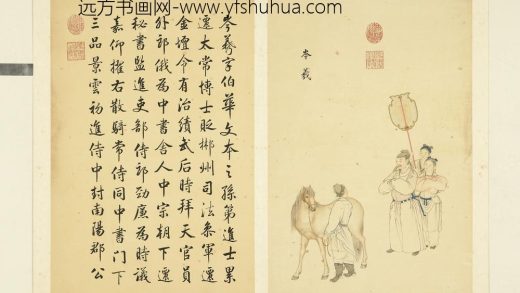 远方书画网-www.yfshuhua.com
岑羲
岑羲字伯華文本之孫第進士累
遷太常博士貶郴州司法參軍遷
金壇令有治績武后時拜天官員
外郎俄為中書舍人中宗朝下遷
秘書監進吏部侍郎勁廉為時議
嘉仰擢右散騎常侍同中書門下
三品景雲初進侍中封南陽郡公